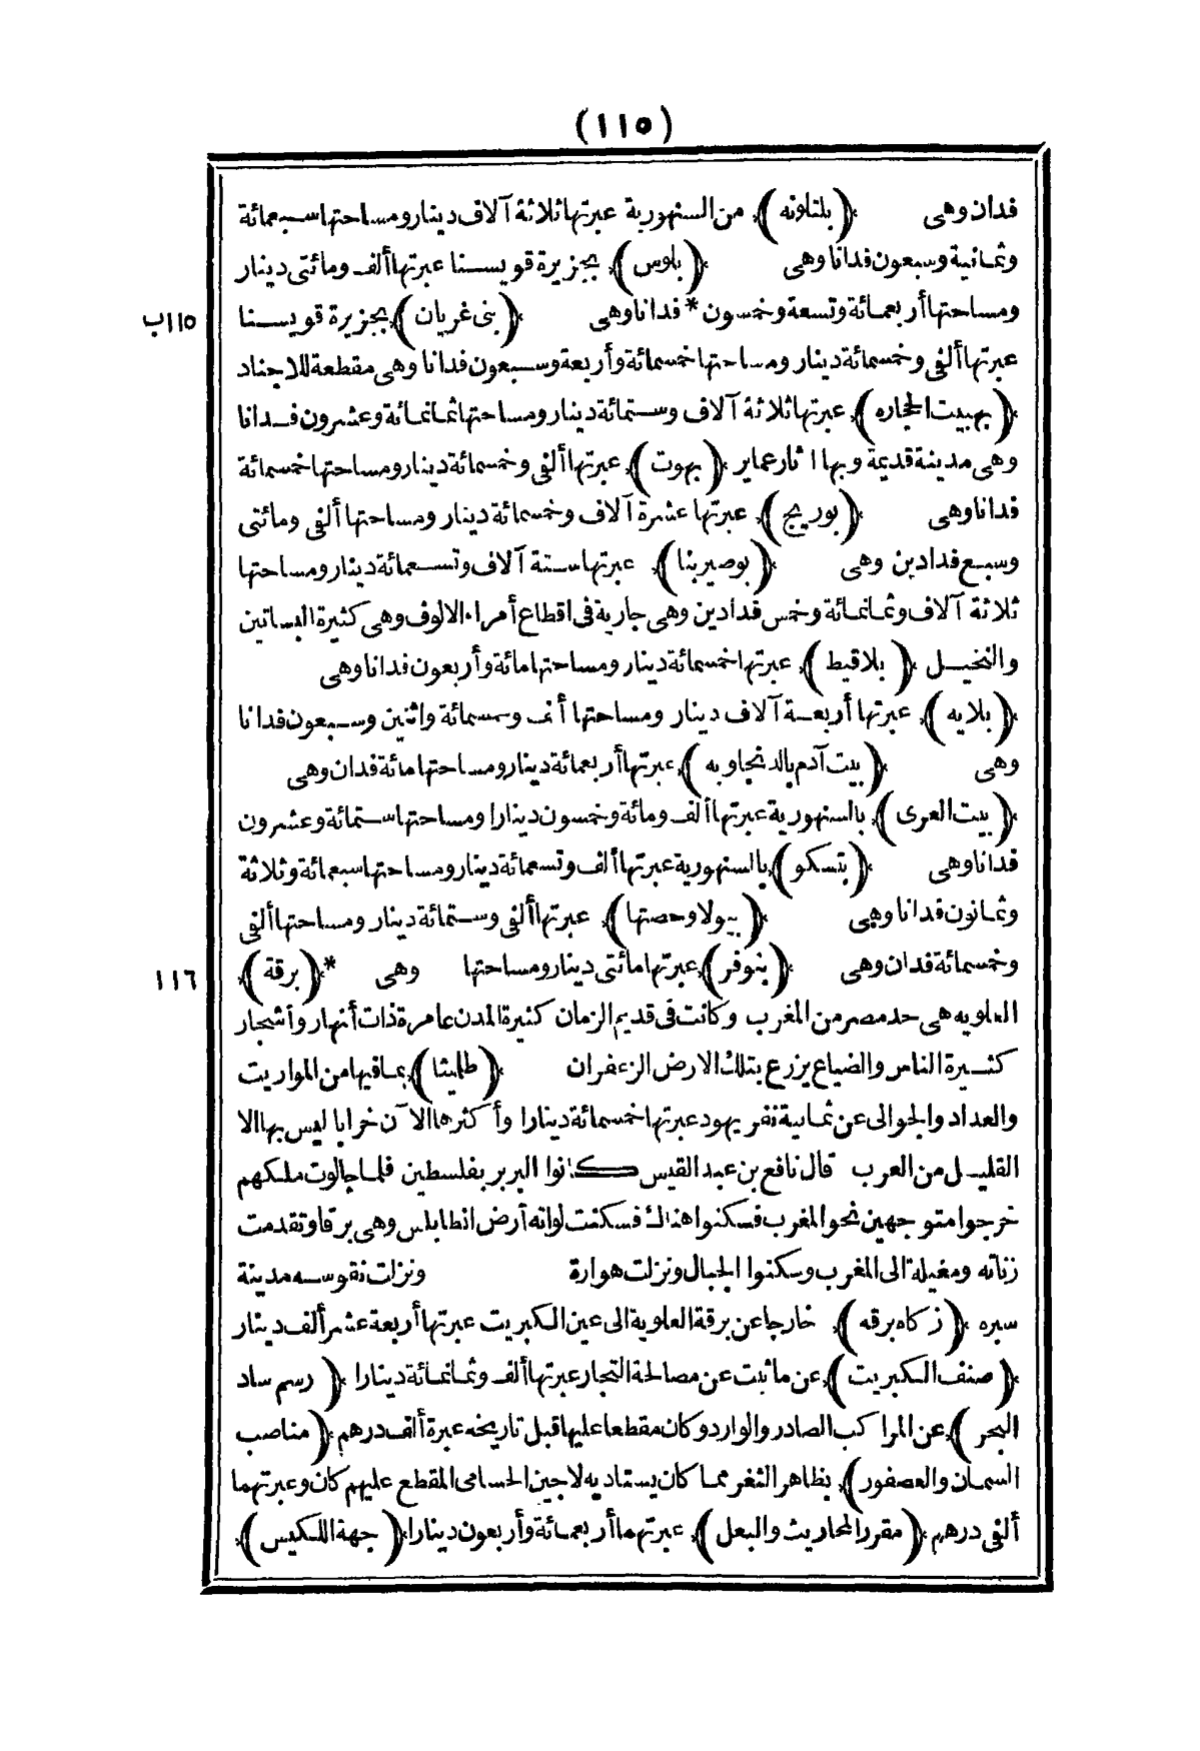 (١١٥)
فدان وهى (بلتاونه) من السنهورية عبرتها ثلاثة آلاف دينار ومساحتها سبعمائة
وثمانية وسبعون فدانا وهى (بلوس) بجزيرة قويسنا عبرتها ألف ومائتى دينار
ومساحتها أربعمائة وتسعة وخمسون * فدانا وهى (بنى غريان) بجزيرة قويسنا
١١٥ب
عبرتها ألفى وخمسمائة دينار ومساحتها خمسمائة وأربعة وسبعون فدانا وهى مقطعة للاجناد
(بهبيت الحجاره) عبرتها ثلاثة آلاف وستمائة دينار ومساحتها ثمانمائة وعشرون فدانا
وهى مدينة قديمة وبها اثار عماير (بهوت) عبرتها ألفى وخمسمائة دينار ومساحتها خمسمائة
فدانا وهى (بوريج) عبرتها عشرة آلاف وخمسمائة دينار ومساحتها ألفى ومائتى
وسبع فدادين وهى (بوصيربنا) عبرتها ستة آلاف وتسعمائة دينار ومساحتها
ثلاثة آلاف وثمانمائة وخمس فدادين وهى جارية فى اقطاع أمراء الالوف وهى كثيرة البساتين
والنخيل (بلاقيط) عبرتها خمسمائة دينار ومساحتها مائة وأربعون فدانا وهى
(بلايه) عبرتها أربعة آلاف دينار ومساحتها ألف وخمسمائة واثنين وسبعون فدانا
وهى (بيت آدم بالدنجاويه) عبرتها أربعمائة دينار ومساحتها مائة فدان وهى
(بيت العرى) بالسنهورية عبرتها ألف ومائة وخمسون دينارا ومساحتها ستمائة وعشرون
فدانا وهى (بتسكو) بالسنهورية عبرتها ألف وتسعمائة دينار ومساحتها سبعمائة وثلاثة
وثمانون فدانا وهى (بيولا وحصتها) عبرتها ألفى وستمائة دينار ومساحتها ألفى
وخمسمائة فدان وهى (بنوفر) عبرتها مائتى دينار ومساحتها وهى * (برقة)
١١٦
العلويه هى حد مصر من المغرب وكانت فى قديم الزمان كثيرة المدن عامرة ذات أنهار وأشجار
كثيرة الناس والضياع يزرع بتلك الارض الزعفران (طلميثا) بمافيها من المواريت
والعداد والجوالى عن ثمانية نفر يهود عبرتها خمسمائة دينارا وأكثرها الآن خرابا ليس بها الا
القليل من العرب قال نافع بن عبد القيس كانوا البربر بفلسطين فلما جالوت ملكهم
خرجوا متوجهين نحو المغرب فسكنوا هناك فسكنت لواته أرض انطابلس وهى برقا وتقدمت
زناته ومغيلة الى المغرب وسكنوا الجبال ونزلت هوارة ونزلت نفوسه مدينة
سبره (زكاه برقه) خارجا عن برقة العلوية الى عين الكبريت عبرتها أربعة عشر ألف دينار
(صنف الكبريت) عن ما ثبت عن مصالحة التجار عبرتها ألف وثمانمائة دينارا (رسم ساد
البحر) عن المراكب الصادر والوارد وكان مقطعا عليها قبل تاريخه عبرة ألف درهم (مناصب
السمان والعصفور) بظاهر الثغر مما كان يستاديه لاجين الحسامى المقطع عليهم كان وعبرتهما
ألفى درهم (مقرر المحاريث والبعل) عبرتهما أربعمائة وأربعون دينارا (جهة اللكيس)